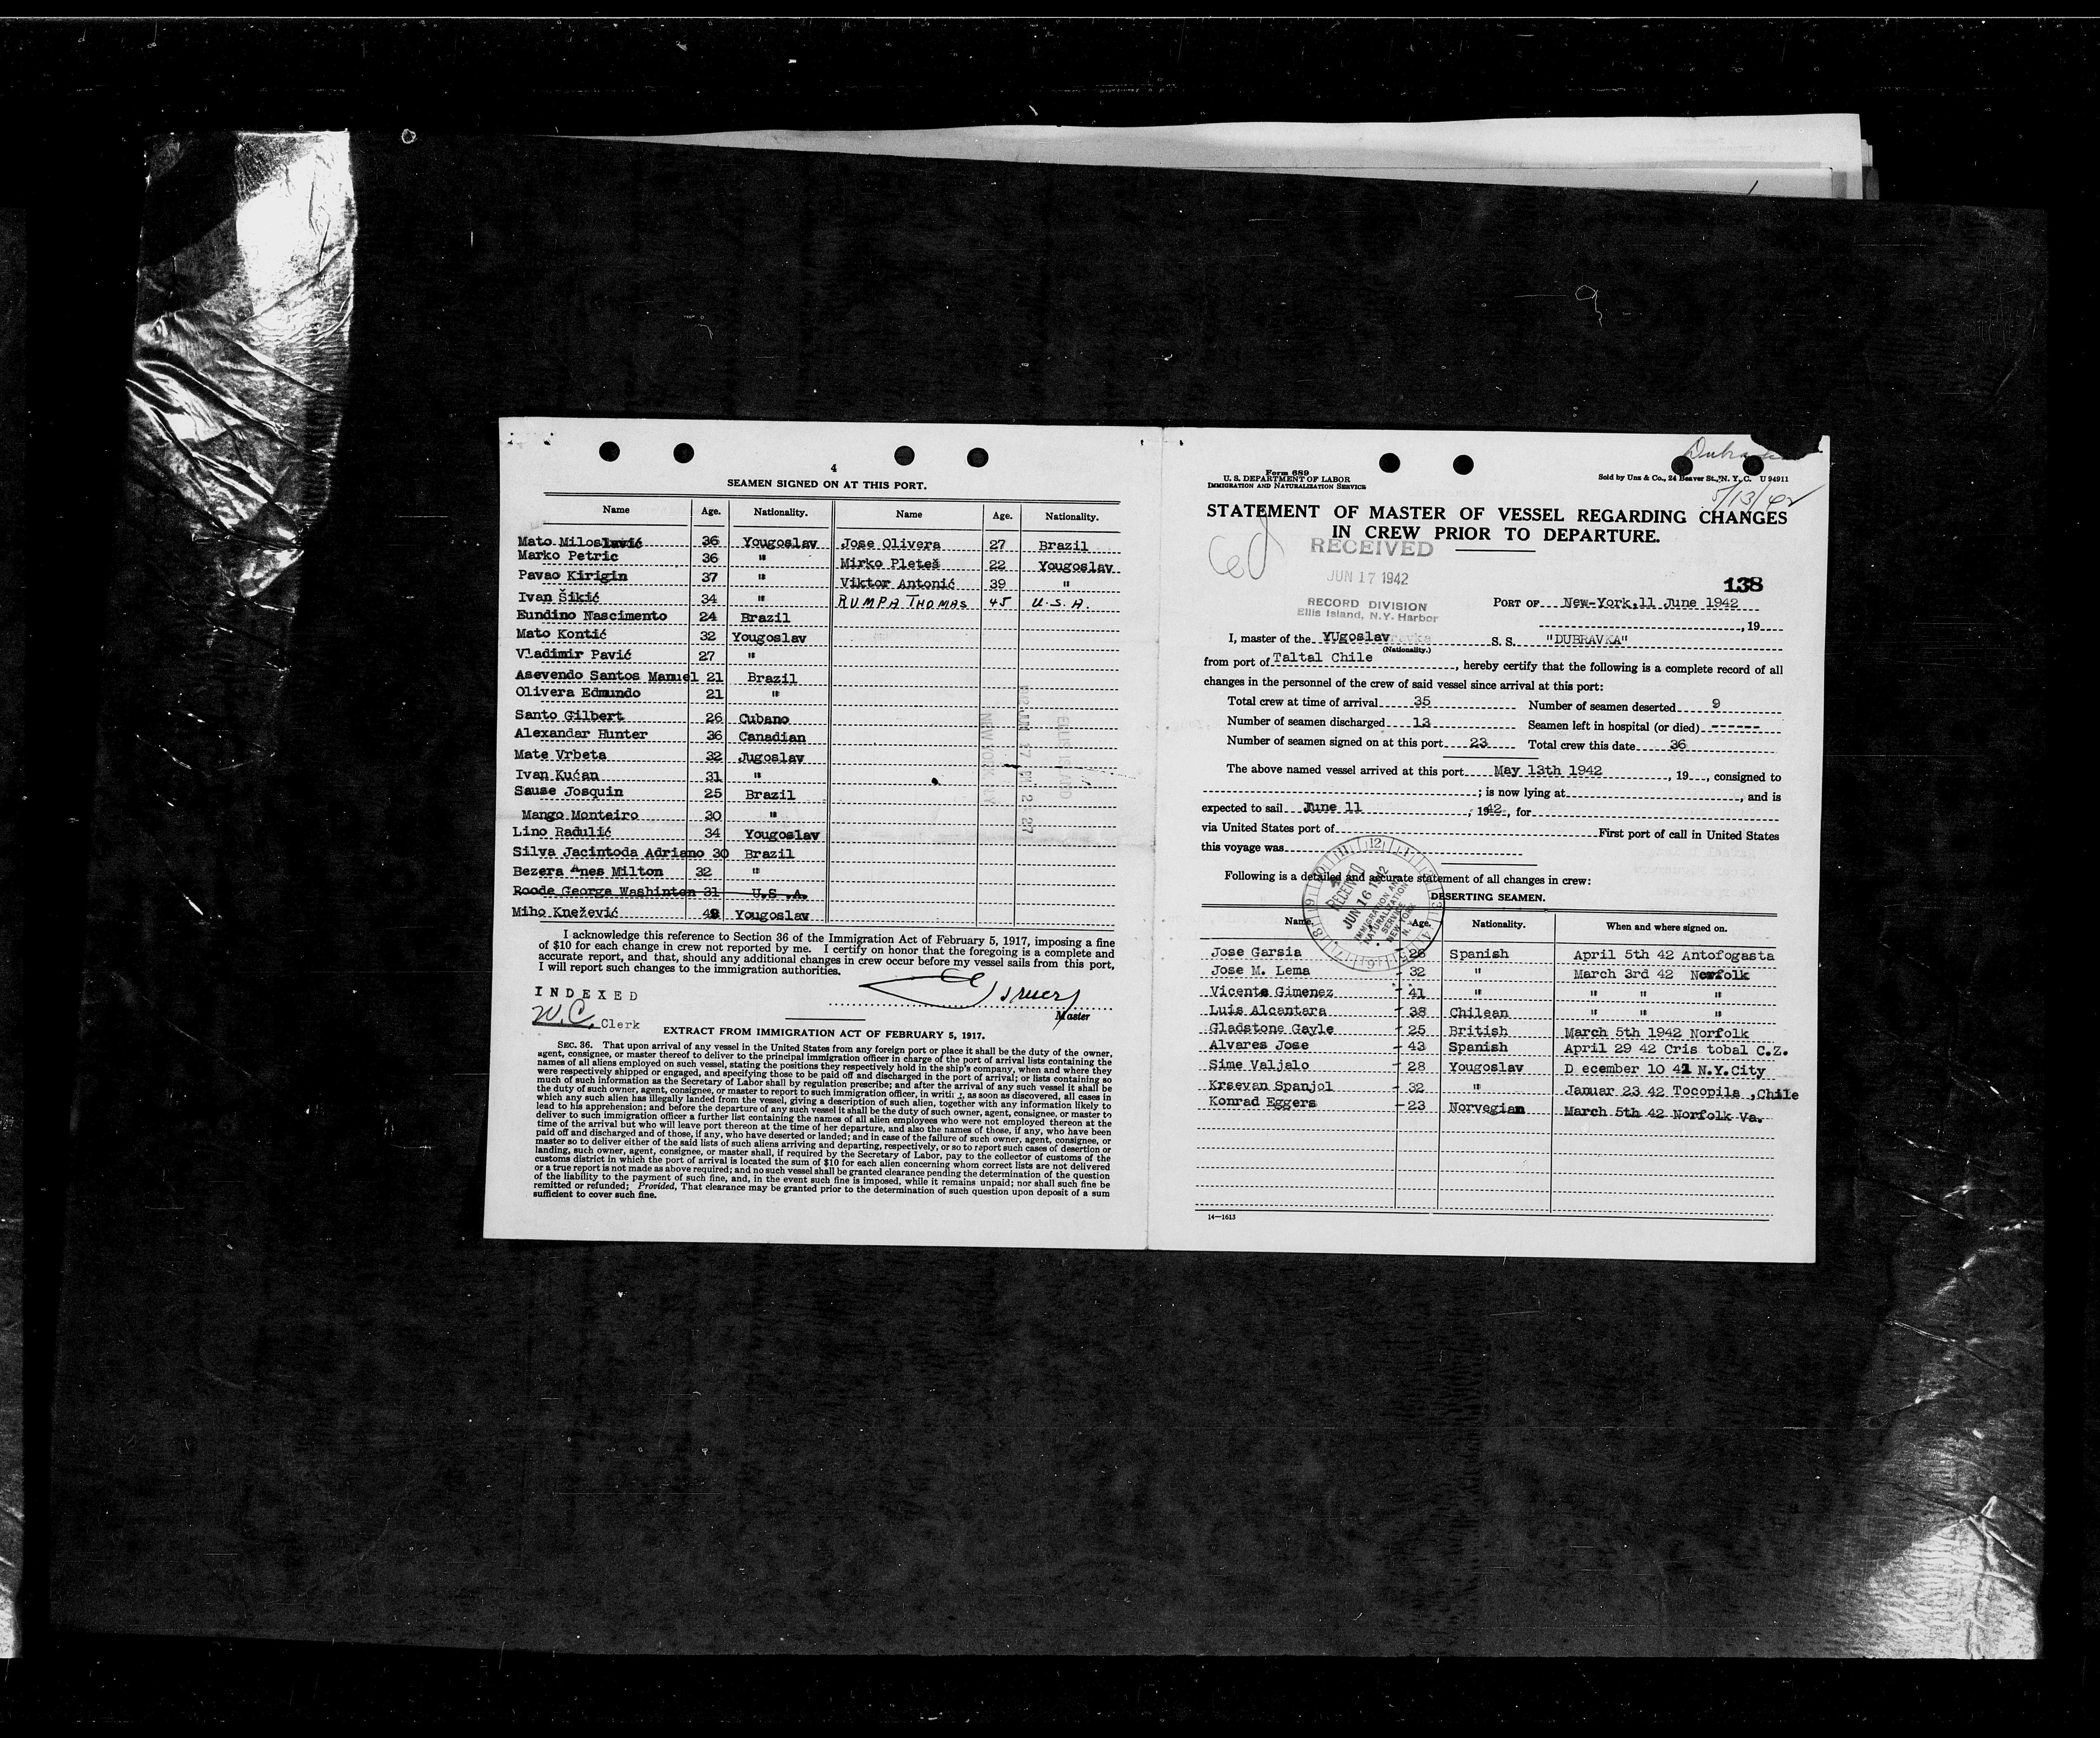 4
SEAMEN SIGNED ON AT THIS PORT.
Name Age. Nationality. Name Age. Nationality.
Mato Miloslavić 36 Yougoslav Jose Olivera 27 Brazil
Marko Petric 36 " Mirko Pleteš 22 Yougoslav
Pavao Kirigin 37 " Viktor Antonić 39 "
Ivan Šikić 34 " RUMPA THOMAS 45 U.S.A.
Eundino Nascimento 24 Brazil
Mato Kontić 32 Yougoslav
Vladimir Pavić 27 "
Asevendo Santos Manuel 21 Brazil
Olivera Edmundo 21 "
Santo Gilbert 26 Cubano
Alexandar Hunter 36 Canadian
Mate Vrbeta 32 Jugoslav
Ivan Kućan 31 "
Sause Josquin 25 Brazil
Mango Monteiro 30 "
Lino Radulić 34 Yougoslav
Silva Jacintoda Adriano 30 Brazil
Bezera Anes Milton 32 "
Roode George Washinton 31 U.S.A.
Miho Knežević 48 Yougoslav
I acknowledge this reference to Section 36 of the Immigration Act of February 5, 1917, imposing a fine
of $10 for each change in crew not reported by me. I certify on honor that the foregoing is a complete and
accurate report, and that, should any additional changes in crew occur before my vessel sails from this port,
I will report such changes to the immigration authorities.
INDEXED
W.C. Clerk
Master
EXTRACT FROM IMMIGRATION ACT OF FEBRUARY 5, 1917.
SEC. 36. That upon arrival of any vessel in the United States from any foreign port or place it shall be the duty of the owner,
agent, consignee, or master thereof to deliver to the principal immigration officer in charge of the port of arrival lists containing the
names of all aliens employed on such vessel, stating the positions they respectively hold in the ship's company, when and where they
were respectively shipped or engaged, and specifying those to be paid off and discharged in the port of arrival; or lists containing so
much of such information as the Secretary of Labor shall by regulation prescribe; and after the arrival of any such vessel it shall be
the duty of such owner, agent, consignee, or master to report to such immigration officer, in writing, as soon as discovered, all cases in
which any such alien has illegally landed from the vessel, giving a description of such alien, together with any information likely to
lead to his apprehension; and before the departure of any such vessel it shall be the duty of such owner, agent, consignee, or master to
deliver to such immigration officer a further list containing the names of all alien employees who were not employed thereon at the
time of the arrival but who will leave port thereon at the time of her departure, and also the names of those, if any, who have been
paid off and discharged and of those, if any, who have deserted or landed; and in case of the failure of such owner, agent, consignee, or
master so to deliver either of the said lists of such aliens arriving and departing, respectively, or so to report such cases of desertion or
landing, such owner, agent, consignee, or master shall, if required by the Secretary of Labor, pay to the collector of customs of the
customs district in which the port of arrival is located the sum of $10 for each alien concerning whom correct lists are not delivered
or a true report is not made as above required; and no such vessel shall be granted clearance pending the determination of the question
of the liability to the payment of such fine, and, in the event such fine is imposed, while it remains unpaid; nor shall such fine be
remitted or refunded; Provided, That clearance may be granted prior to the determination of such question upon deposit of a sum
sufficient to cover such fine.
Form 689
U. S. DEPARTMENT OF LABOR
IMMIGRATION AND NATURALIZATION SERVICE
Sold by Unz & Co., 24 Beaver St., N. Y. C. U 94911
5/13/42
STATEMENT OF MASTER OF VESSEL REGARDING CHANGES
IN CREW PRIOR TO DEPARTURE.
RECEIVED
JUN 17 1942
RECORD DIVISION
Ellis Island, N.Y. Harbor
138
PORT OF New-York,11 June 1942
, 19
I, master of the YUgoslav S. S. "DUBRAVKA"
(Nationality.)
from port of Taltal Chile , hereby certify that the following is a complete record of all
changes in the personnel of the crew of said vessel since arrival at this port:
Total crew at time of arrival 35 Number of seamen deserted 9
Number of seamen discharged 13 Seamen left in hospital (or died) ------
Number of seamen signed on at this port 23 Total crew this date 36
The above named vessel arrived at this port May 13th 1942 , 19 , consigned to
; is now lying at , and is
expected to sail June 11 , 1942 , for
via United States port of First port of call in United States
this voyage was
RECEIVED
JUN 16 1942
IMMIGRATION AND
NATURALIZATION
SERVICE
NEW YORK
N. Y.
Following is a detailed and accurate statement of all changes in crew:
DESERTING SEAMEN.
Name. Age. Nationality. When and where signed on.
Jose Garsia 26 Spanish April 5th 42 Antofogasta
Jose M. Lema 32 " March 3rd 42 Norfolk
Vicente Gimenez 41 " " " "
Luis Alcantara 38 Chilean " " "
Gladstone Gayle 25 British March 5th 1942 Norfolk
Alvares Jose 43 Spanish April 29 42 Cris tobal C.Z.
Sime Valjalo 28 Yougoslav D ecember 10 41 N.Y.City
Krsevan Spanjol 32 " Januar 23 42 Tocopila ,Chile
Konrad Eggers 23 Norvegian March 5th 42 Norfolk Va.
14—1613